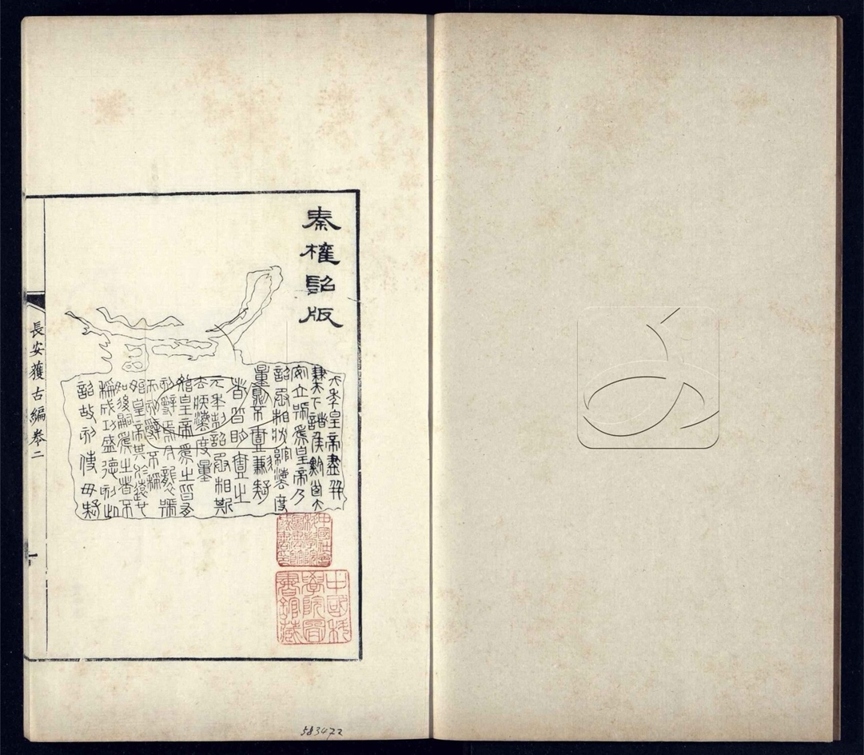 秦權詔版
六年皇帝盡并
兼天下諸侯黔首大
安立號爲皇帝乃
詔丞相狀綰灋度
量則不壹歉疑
者皆明壹之
元年制詔丞相斯
去疾灋度量
始皇帝爲之皆有
刻辭焉今襲號
而刻辭不稱
始皇帝其於久遠也
如後嗣爲之者不
稱成功盛德刻此
詔故刻使毋疑
長安獲古編卷二
一
中國科學院圖書館藏
583422